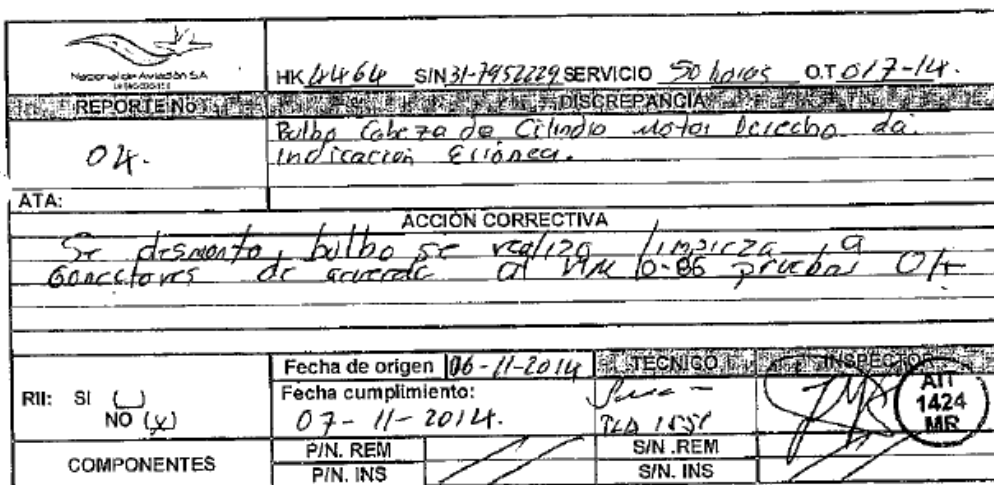 Nacional de Aviación S.A
HK 4464 S/N 31-7952229 SERVICIO 50 horas O.T 017-14.
REPORTE No DISCREPANCIA
04.
Bulbo Cabeza de Cilindro Motor Derecho da
indicación Errónea.
ATA:
ACCIÓN CORRECTIVA
Se desmonto, bulbo se realiza limpieza a
conectores de acuerdo al MM pruebas O/K
Fecha de origen 06-11-2014 TECNICO INSPECTOR
RII: SI (_)
NO (x)
Fecha cumplimiento:
07-11-2014.
AIT
1424
MR
COMPONENTES
P/N. REM S/N .REM
P/N. INS S/N. INS